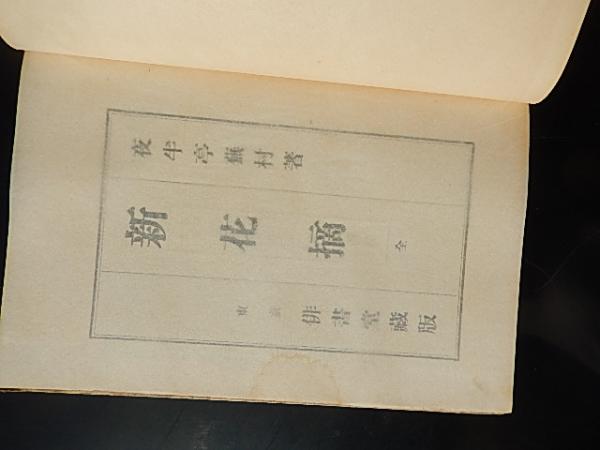 夜半亭蕪村著
新花摘 全
東京 俳書堂蔵版